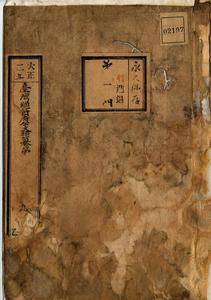 02197
永久保存
第一門
大正
二、三
臺灣總督府公文類纂
九
乙